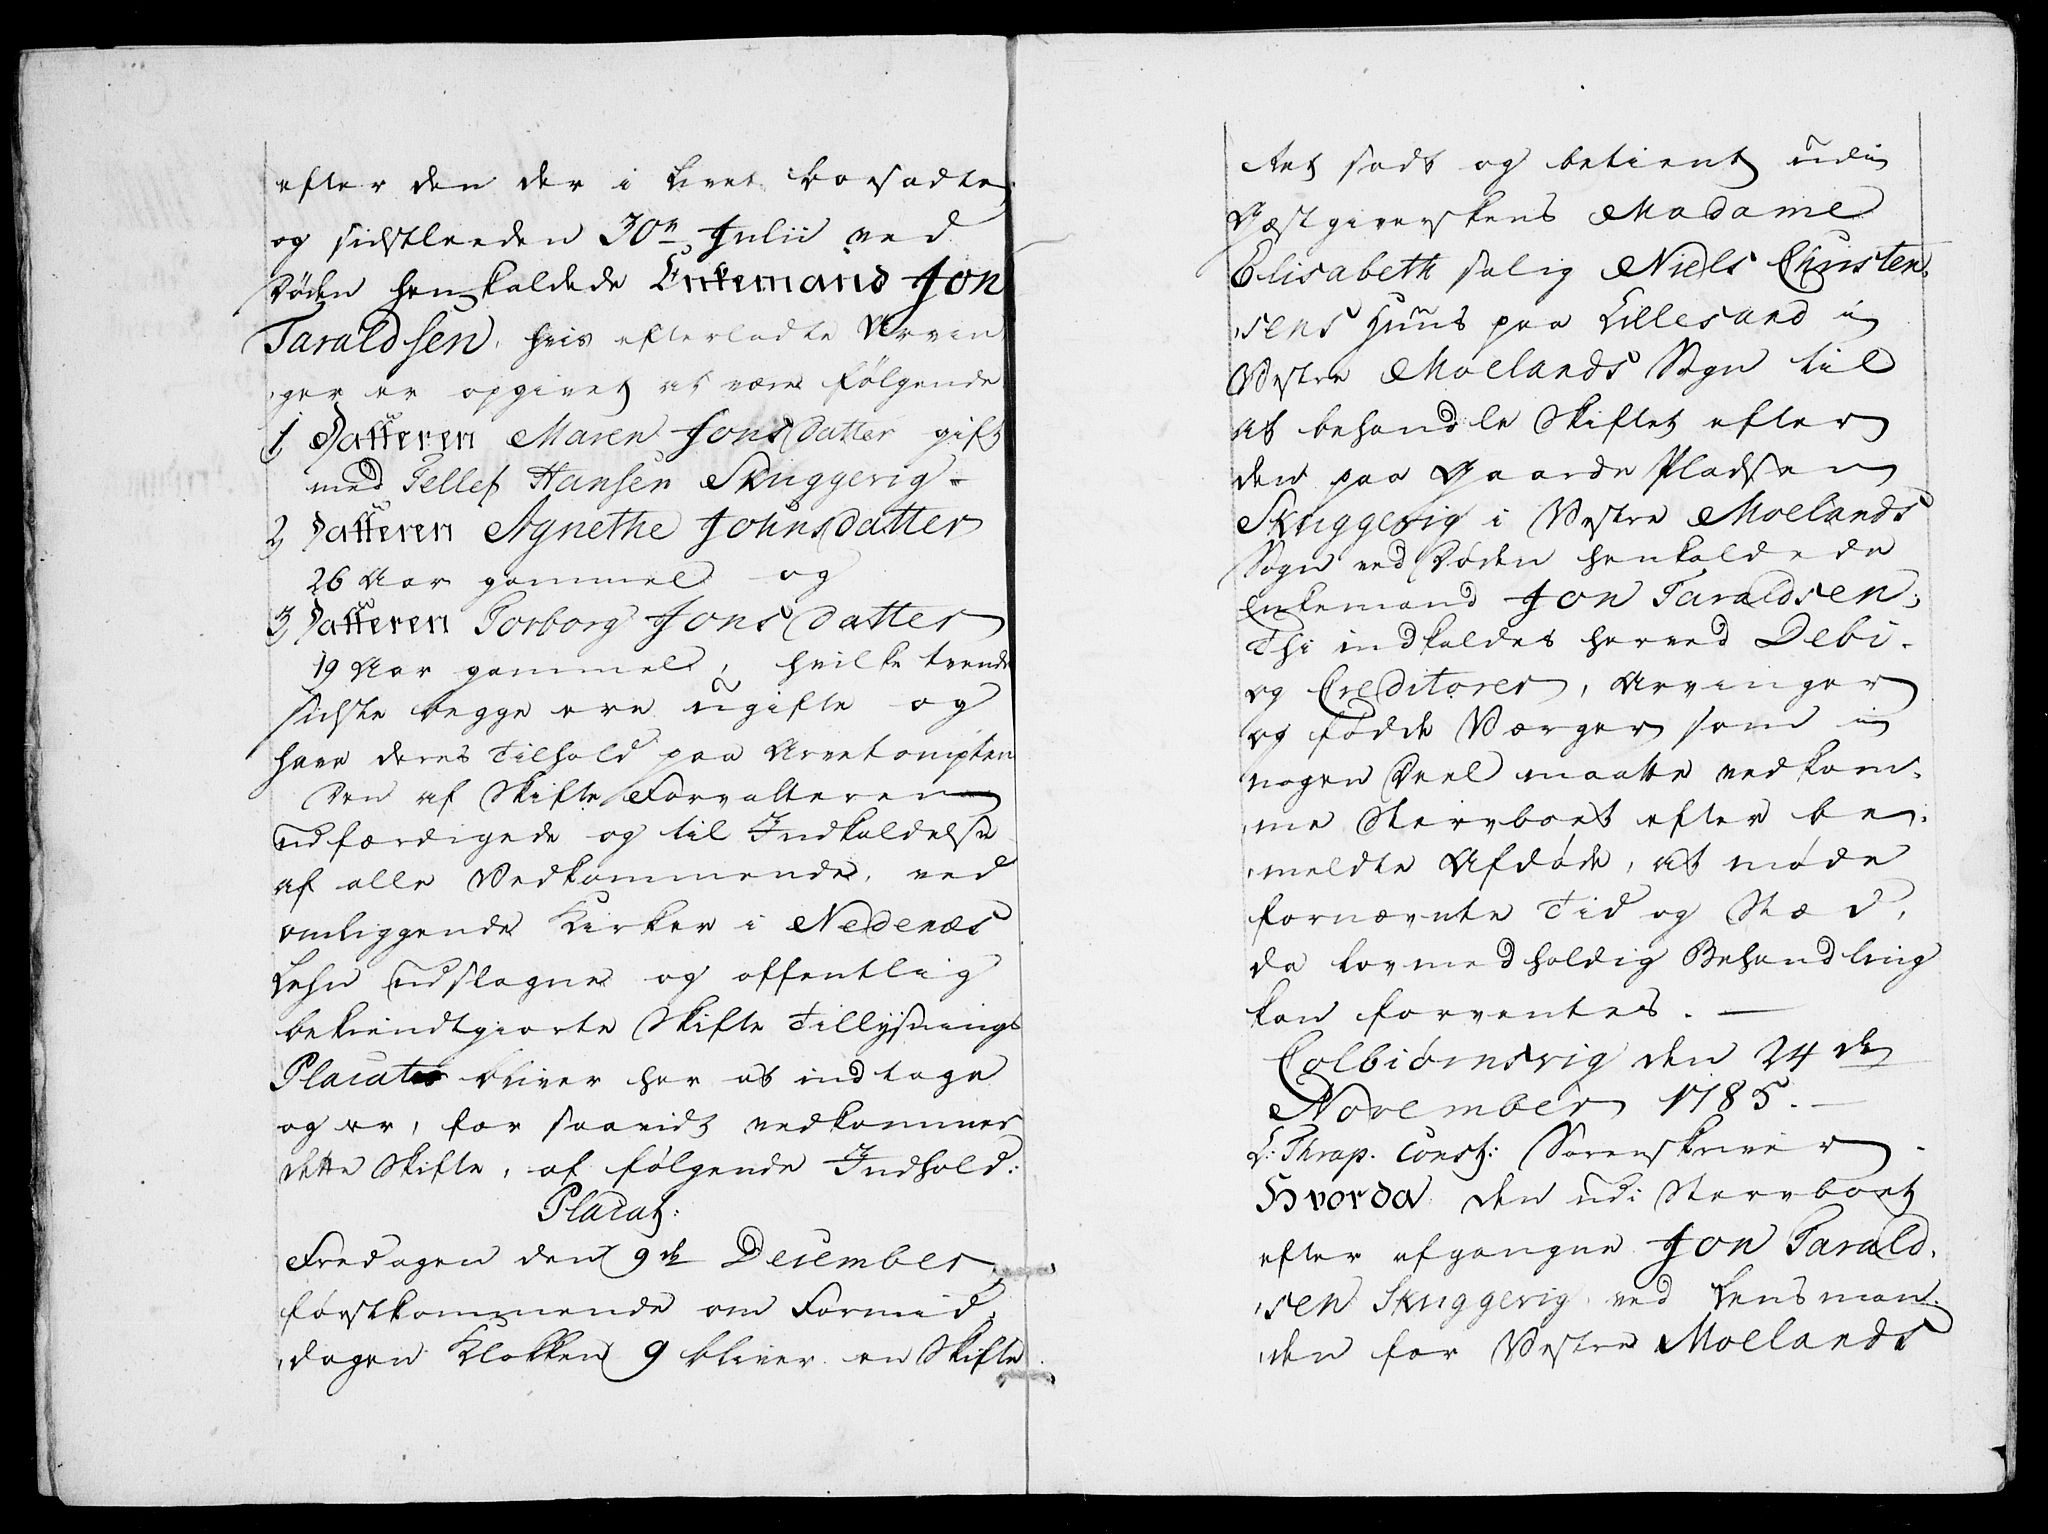 efter den der i Livet boesadte,
og sidstleeden 30te Julii ved
Døden henkaldede Enkemand Jon
Taraldsen, hvis efterladte Arvin
ger er opgivet at være følgende
1, Datteren Maren Jons Datter gift
med Tellef Hansen Skuggevig
2, Datteren Agnethe Johnsdatter
26 Aar gammel og
3, Datteren Torborg Jons Datter
19 Aar gammel, hvilke tvende
sidste begge ere ugifte og
have deres Tilhold paa Arvetompten
Den af Skifte Forvalteren
udfærdigede og til Indkaldelse
af alle Vedkommende, ved
omliggende Kirker i Nedenæs
Lehn udslagne og offentlig
bekiendtgiorte Skifte Tillysnings
Placater bliver her at indtage
og er, for saavidt vedkommer
dette Skifte, af følgende Indhold:
Placat:
Fredagen den 9de December
førstkommende om Formid,
,dagen Klokken 9 bliver en Skifte
Ret sadt og betient udi
Giæstgiverskens Madame
Elisabeth salig Niels Christen,
,sens Huus paa Lillesand i
Vestre Moelands Sogn til
at behandle Skiftet efter
den paa Gaarde Pladsen
Skuggevig i Vestre Moelands
Sogn ved Døden henkaldede
Enkemand Jon Taraldsen;
Thi indkaldes herved Debi-
og Creditorer, Arvinger
og fødde Værger som i
nogen Deel maatte vedkom,
,me Stervboet efter be,
,meldte Afdøde, at møde
fornævnte Tid og Stæd,
da lovmedholdig Behandling
kan forventes. —
Colbiørnsvig den 24de
November 1785. —
L: Thrap. Const: Sorenskriver.
Hvorda den udi Stervboet
efter afgangne Jon Tarald,
,sen Skuggevig ved Lensman,
,den for Vestre Moelands